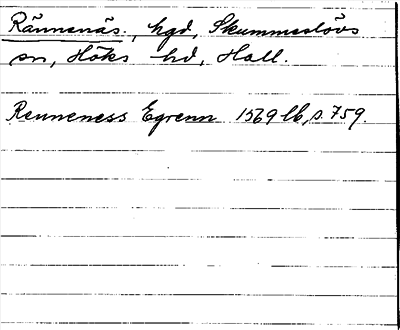 Rännenäs, hgd, Skummeslövs
sn, Höks hd, Hall.
Renneness Egrenn 1569 lb, s. 759.